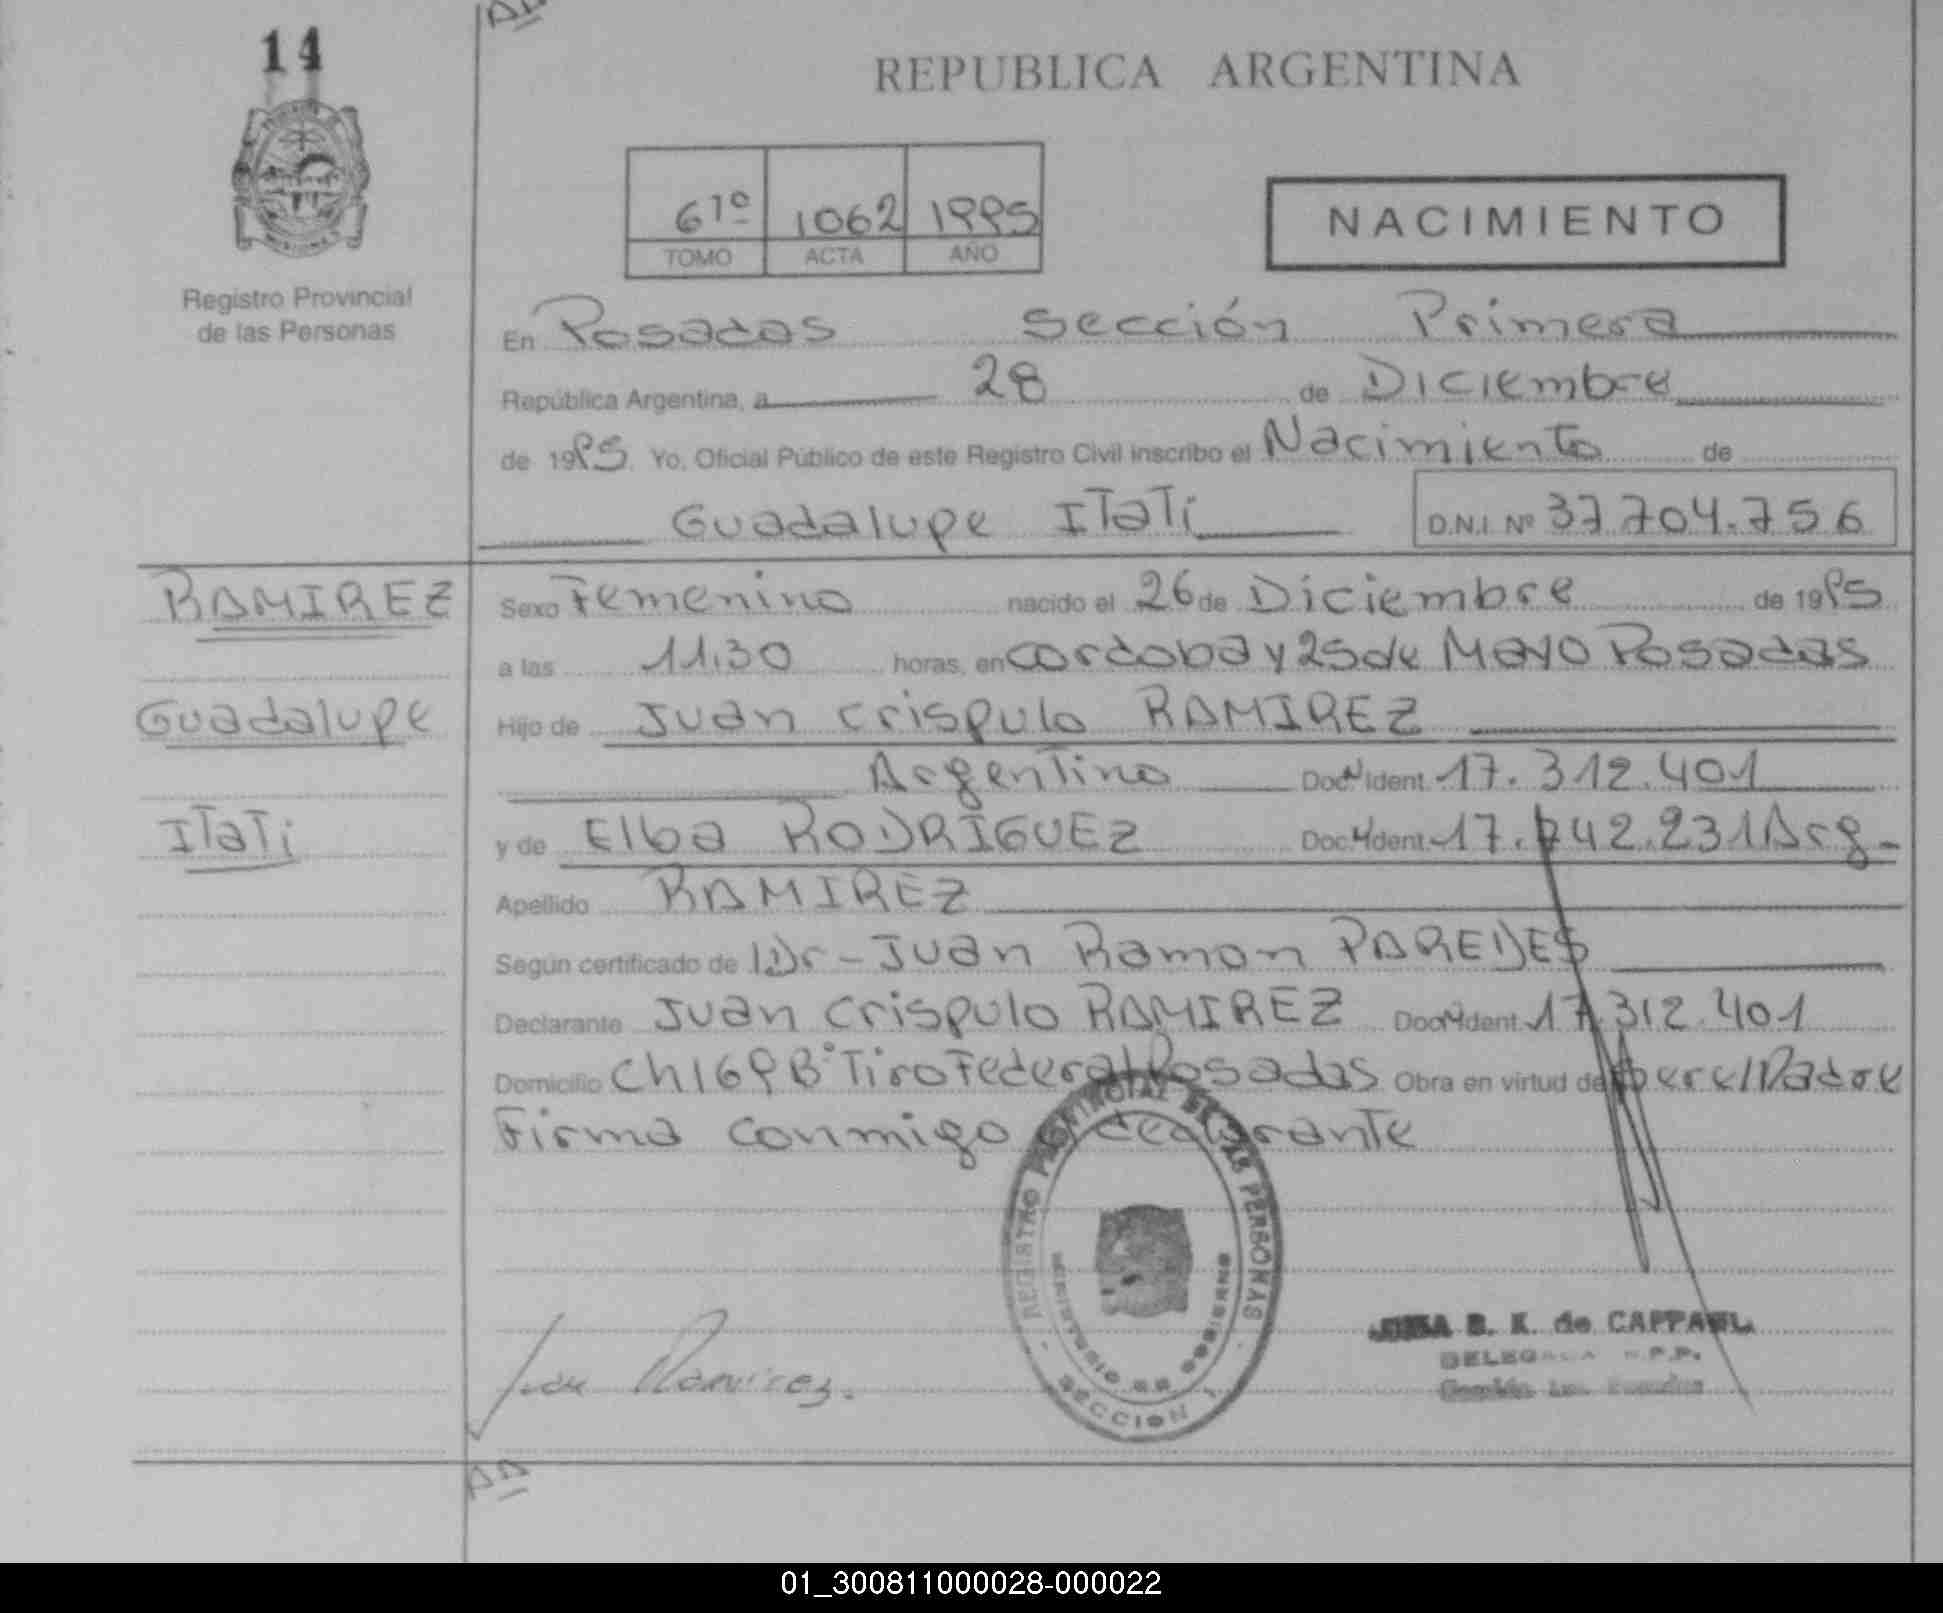 14
REPUBLICA ARGENTINA
61º 1062 1995
TOMO ACTA AÑO
NACIMIENTO
Registro Provincial
de las Personas
En Posadas Sección Primera
República Argentina, a 28 de Diciembre
de 1995. Yo, Oficial Público de este Registro Civil inscribo el Nacimiento de
Guadalupe ITaTi D.N.I. Nº 37.704.756
RAMIREZ
Guadalupe
ITaTi
Sexo Femenino nacido el 26 de Diciembre de 1995
a las 11.30 horas, en cordoba y 25 de Mayo Posadas
Hijo de Juan crispulo RAMIREZ
Argentino Doc. Ident. 17.312.401
y de Elba RODRIGUEZ Doc. Ident. 17. 42.231 Arg-
Apellido RAMIREZ
Según certificado de Dr - Juan Ramon PAREDES
Declarante Juan crispulo RAMIREZ Doc. Ident. 17.312.401
Domicilio Ch 169 Bº Tiro Federal Posadas Obra en virtud de ser el Padre
Firma conmigo declarante
REGISTRO PROVINCIAL DE LAS PERSONAS
MINISTERIO DE GOBIERNO
SECCION 1
Juan Ramirez.
B. K. de CAPPAUL
01_300811000028-000022